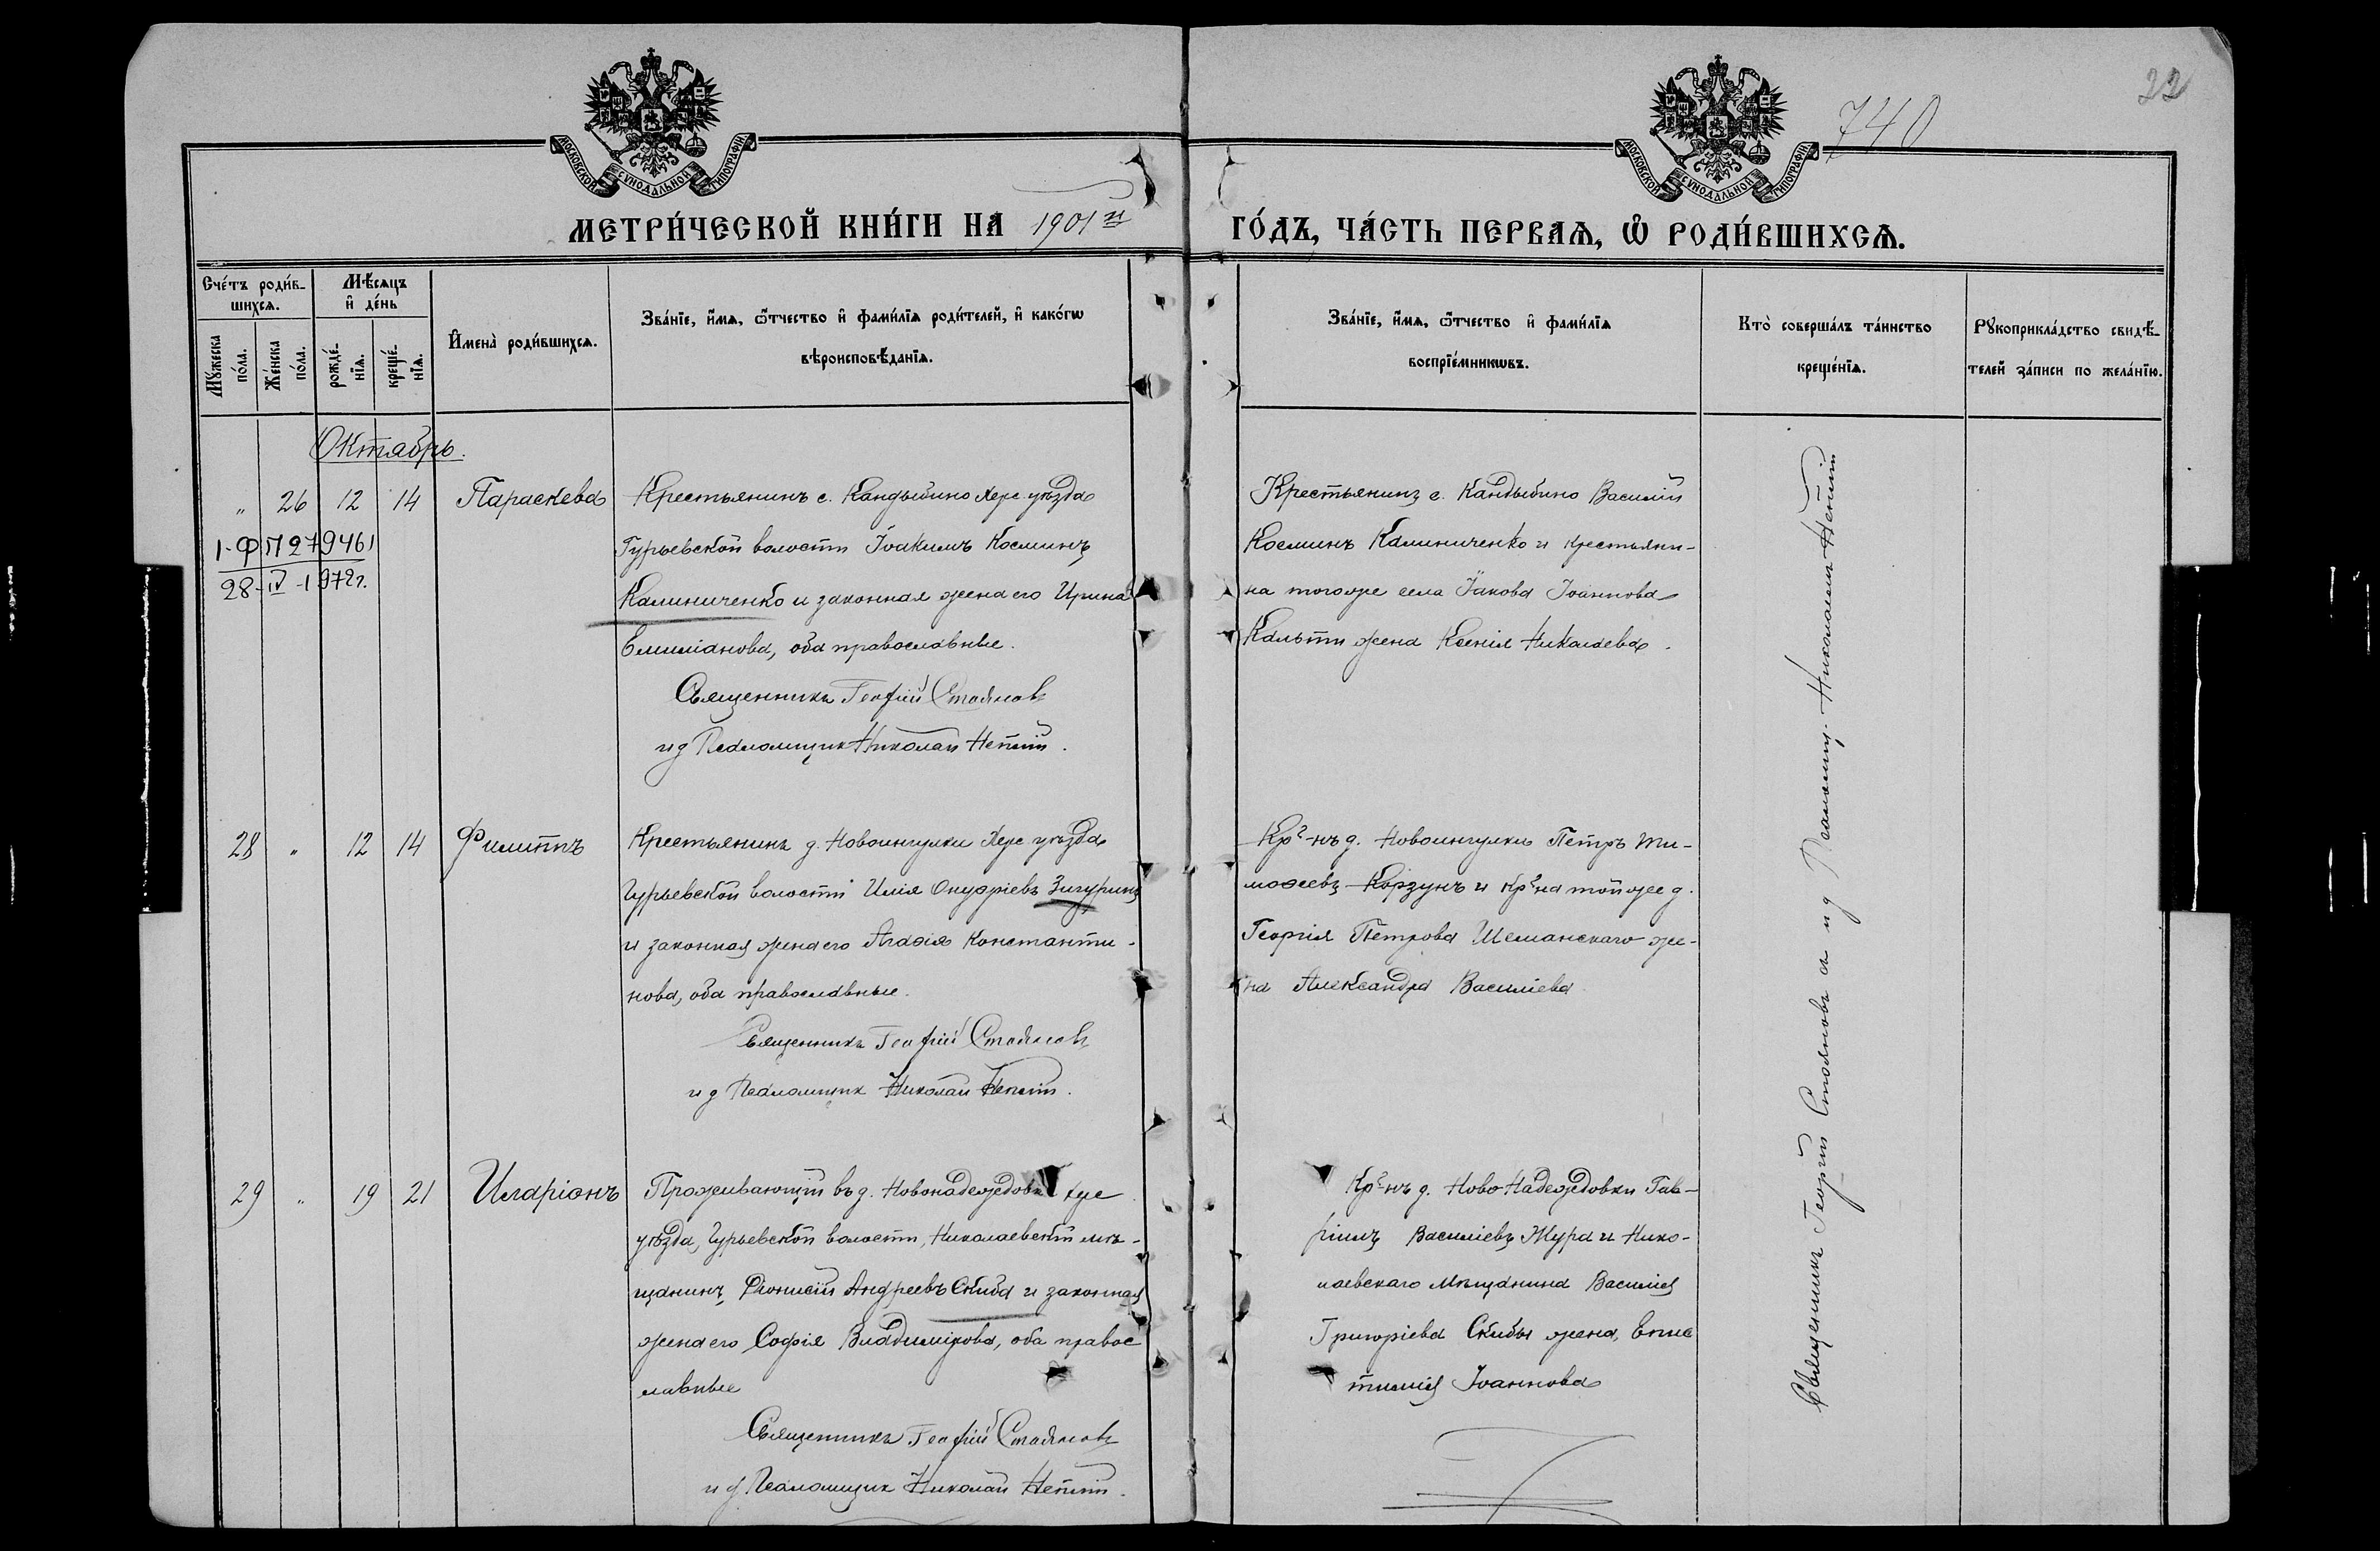 740
22
МОСКОВСКОЙ СѴНОДАЛЬНОЙ ТИПОГРАФІИ
МОСКОВСКОЙ СѴНОДАЛЬНОЙ ТИПОГРАФІИ
МЕТРИ́ЧЕСКОЙ КНИ́ГИ НА 1901й ГО́ДЪ, ЧА́СТЬ ПЕРВАѦ, Ѡ РОДИ́ВШИХСѦ.
Сче́тъ роди́в-
шихсѧ.
Мꙋ́жеска
по́ла.
Же́нска
по́ла.
Мѣ́сѧцъ
и де́нь
рожде́-
нїѧ.
креще́-
нїѧ.
Имена̀ роди́вшихсѧ.
Зва́нїе, и́мѧ, ѻ́тчество и фами́лїѧ роди́телей, и како́гѡ
вѣроисповѣ́данїѧ.
Зва́нїе, и́мѧ, ѻ́тчество и фами́лїѧ
воспрїе́мникѡвъ.
Кто̀ соверша́лъ та́инство
креще́нїѧ.
Рꙋкоприкла́дство свидѣ́-
телей за́писи по жела́нїю.
Октябрь.
„ 26 12 14 Параскева
1-ФП 279461
28-IV-1972г.
Крестьянинъ с. Кандыбино Херс уѣзда
Гурьевской волости Іоакимъ Косминъ
Калиниченко и законная жена его Ирина
Емиліанова, оба православные.
Священникъ Георгій Стояновъ
и д Псаломщик Николай Непит.
Крестьянинъ с. Кандыбино Василій
Косминъ Калиниченко и крестьяни-
на тогоже села Іакова Іоаннова
жена Ксенія Николаева.
28 „ 12 14 Филиппъ
Крестьянинъ д. Новоингулки Херс уѣзда
Гурьевской волости Илія Онуфріевъ Зигуринъ
и законная жена его Агаѳія Константи-
нова, оба православные.
Священникъ Георгій Стояновъ
и д Псаломщик Николай
Кр-нъ д. Новоингулки Петръ Ти-
моѳеевъ Корзунъ и кр-на тойже д.
Георгія Петрова Шеманскаго же-
на Александра Василіева
29 „ 19 21 Иларіонъ
Проживающій въ д. Новонадеждовкѣ Хре
уѣзда, Гурьевской волости, Николаевскій мѣ-
щанинъ Діонисій Андреевъ Скиба и законная
жена его Софія Владимірова, оба правос
лавные
Священникъ Георгій Стояновъ
и д Псаломщик Николай
Кр-нъ д. Ново Надеждовки Гав-
ріилъ Василіевъ Жура и Нико-
лаевскаго мѣщанина Василія
Григоріева Скибы жена,
Іоаннова
Священникъ Георгій Стояновъ и и д Псаломщ. Николай